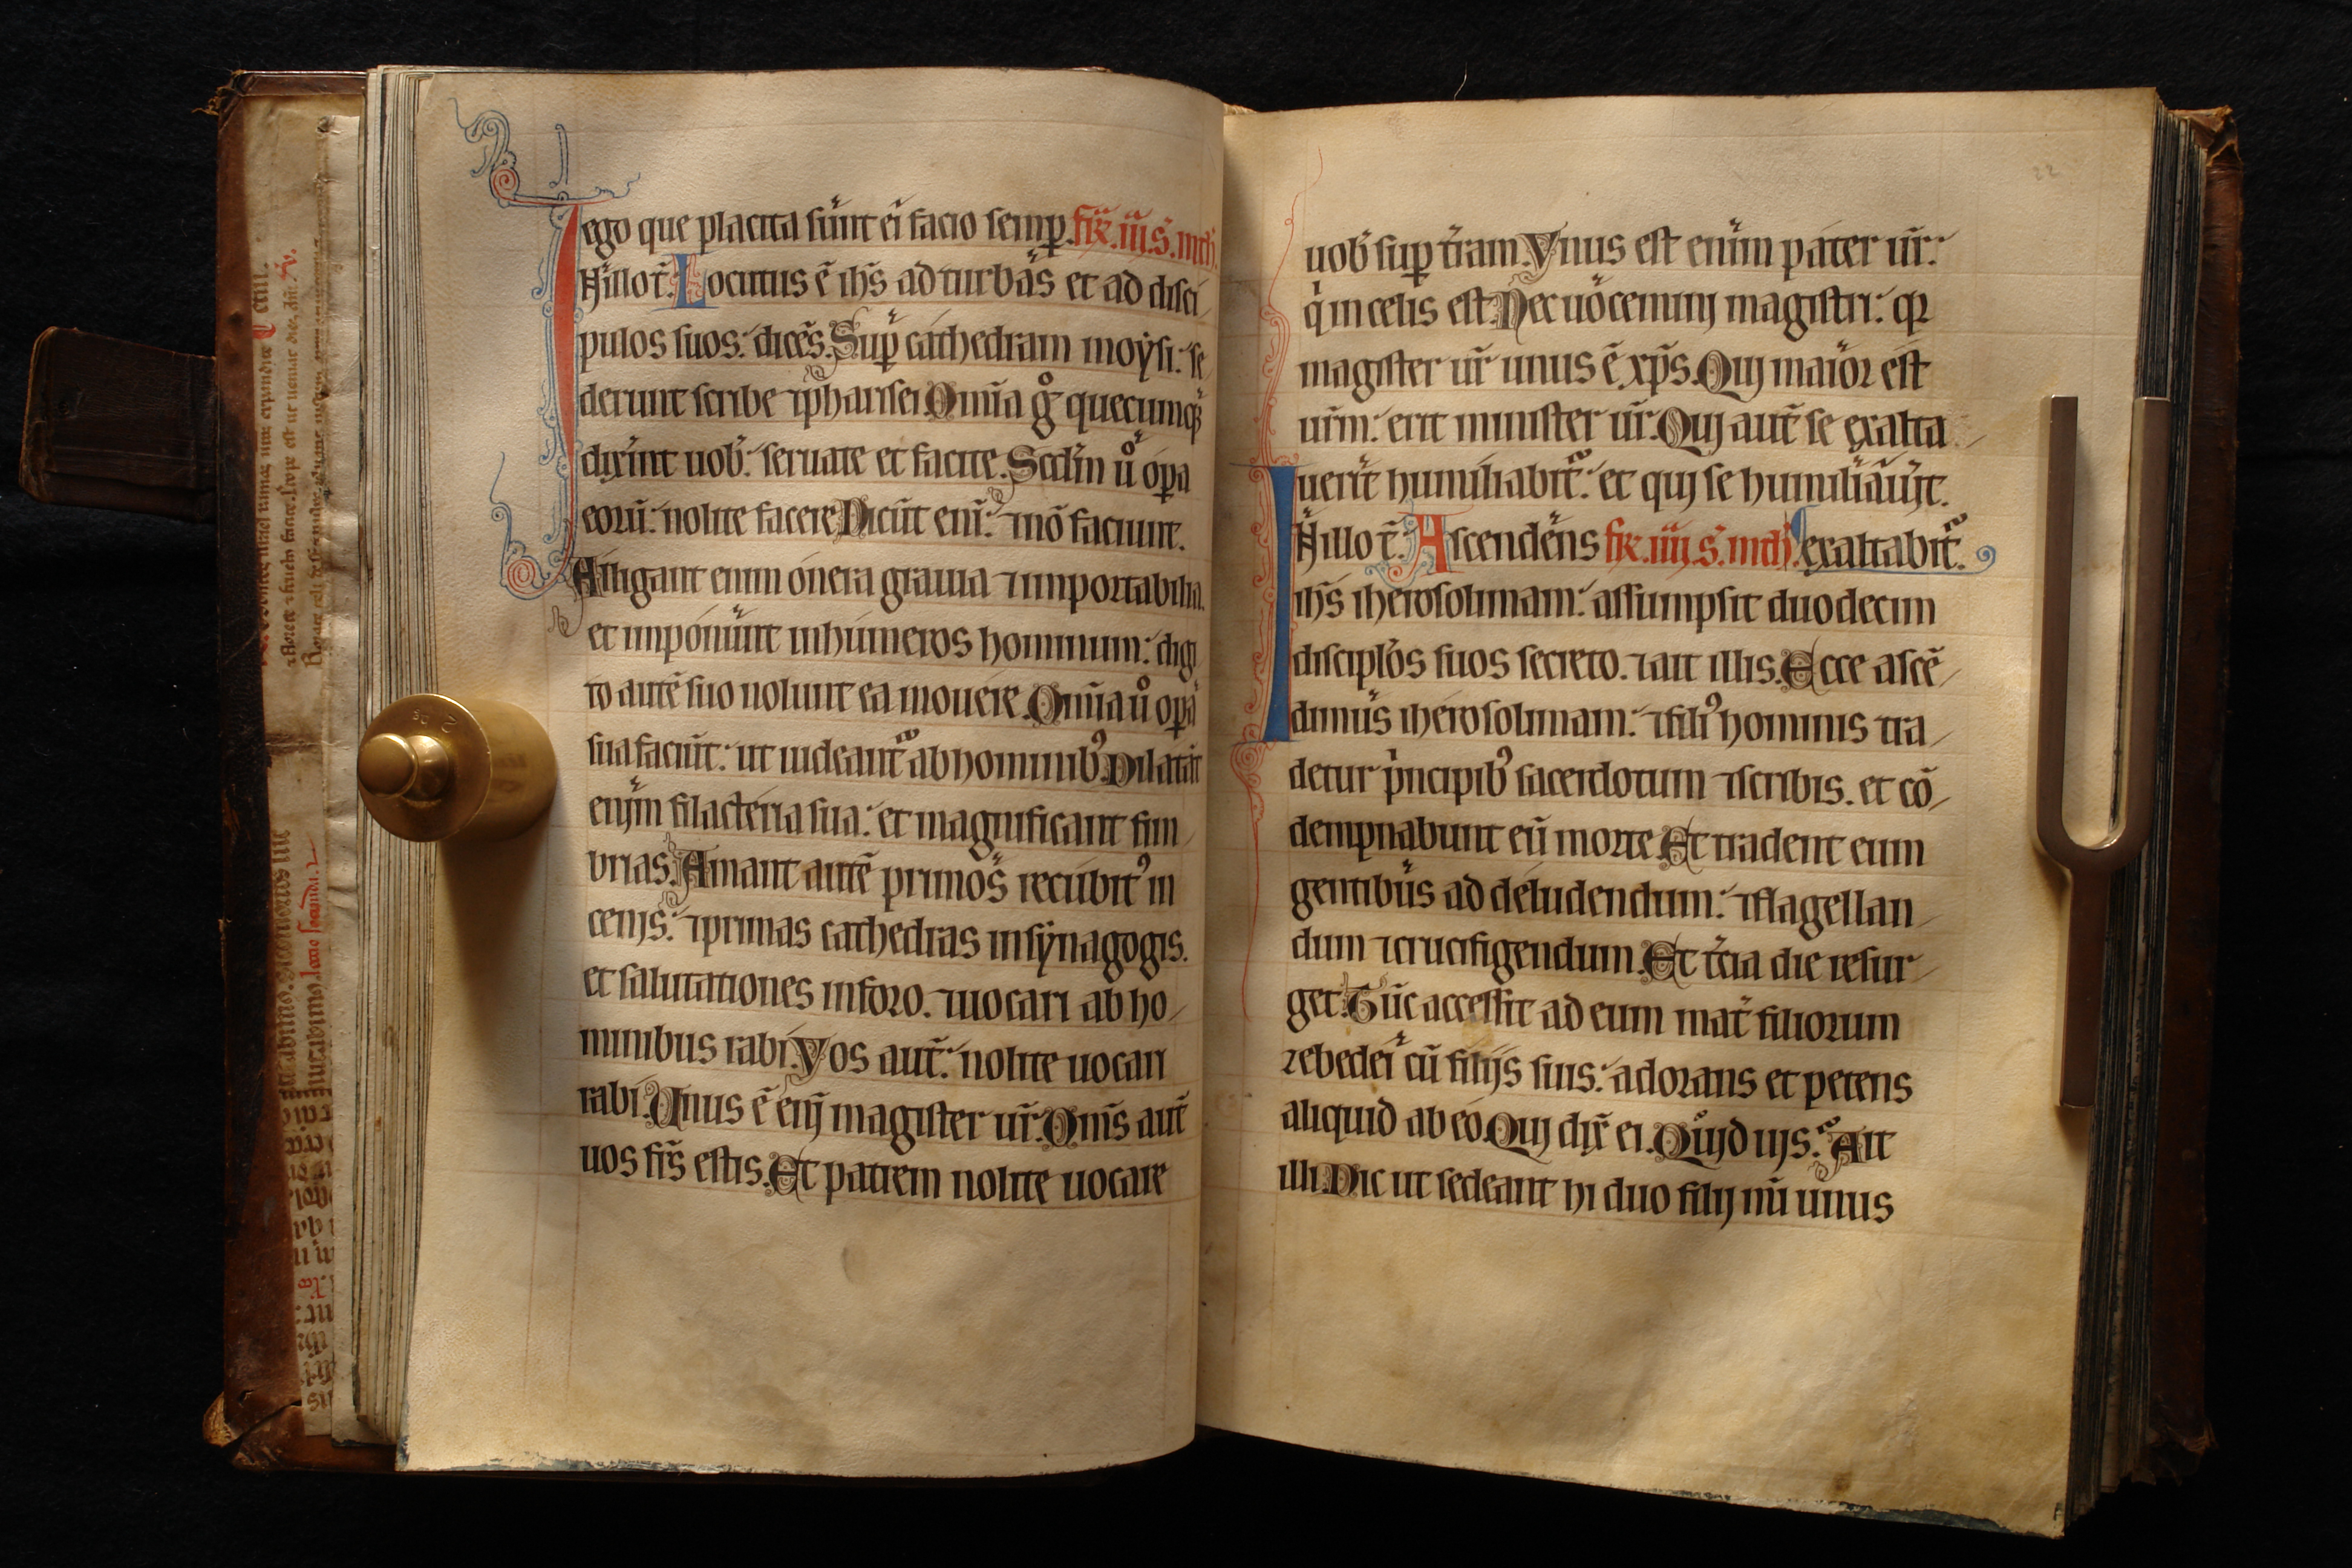 ego que placita sunt ei facio semp̲. fr̄. iii. s̄. mth̄.
In illo t̄. Locutus ē ih̄s ad turbas et ad disci
pulos suos: dicēs. Sup̲ cathedram moysi: se
derunt scribe ⁊ pharisei. Om̄ia gͦ quecumqꝫ
dixīnt uob̄: seruate et facite. Scd̄m ūͦ op̲a
eorū: nolite facere. Dicūt enī: ⁊ nō faciunt.
Alligant enim onera grauia ⁊ importabilia.
et imponunt in humeros hominum: digi
to autē suo nolunt ea mouere. Om̄ia ūͦ op̲a
sua faciūt: ut uideant᷑ ab hominibꝰ. Dilatāt
enim filacteria sua: et magnificant fim
brias. Amant autē primos recubitꝰ in
cenis: ⁊ primas cathedras in synagogis.
et salutationes in foro. ⁊ uocari ab ho
minibus rabi. Vos aut̄: nolite uocari
rabi. Unus ē enī magister ur̄. Om̄s aut̄
uos fr̄s estis. Et patrem nolite uocare
22
uob̄ sup̲ t̄ram. Vnus est enim pater ur̄:
qi in celis est. Nec uocemini magistri: qꝛ
magister ur̄ unus ē xp̄s. Qui maior est
ur̄m: erit minister ur̄. Qui aut̄ se exalta
uerit humiliabit᷑: et qui se humiliauit.
In illo t̄. Ascendens fr̄. iiii. s̄. mth̄. exaltabit᷑.
ih̄s iherosolimam: assumpsit duodecim
discipl̄os suos secreto. ⁊ ait illis. Ecce ascē
dimus iherosolimam: ⁊ filiꝰ hominis tra
detur pⁱncipibꝰ sacerdotum ⁊ scribis. et cō
dempnabunt eū morte. Et tradent eum
gentibus ad deludendum: ⁊ flagellan
dum ⁊ crucifigendum. Et t̄cia die resur
get. Tūc accessit ad eum mat̄ filiorum
zebedei cū filijs suis: adorans et petens
aliquid ab eo. Qui dix̄ ei. Quid uis? Ait
illi. Dic ut sedeant hi duo filij mī unus